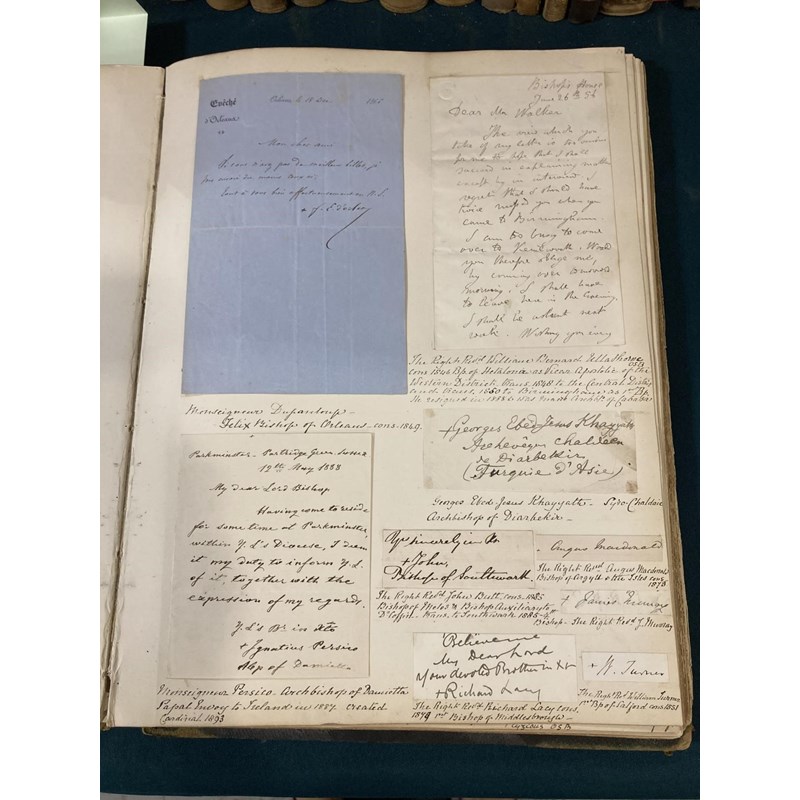 Evêché
d'Orléans
Orléans, le 18 1866
Mon cher ami
Tout à vous bien affectueusement en N.S.
+ f. Ev. d'Orl.
Monseigneur Dupanloup –
Felix Bishop of Orleans – cons. 1849.
Parkminster – Partridge Green Sussex
12th May 1888
My dear Lord Bishop
Having come to reside
for some time at Parkminster,
within Y.L's Diocese, I deem
it my duty to inform Y.L.
of it, together with the
expression of my regards.
Y.L's Br in Xto
+ Ignatius Persico
Abp of Damietta
Monseigneur Persico. Archbishop of Damietta
Papal Envoy to Ireland in 1887. created
Cardinal 1893
Bishop's House
June 26th 56
Dear Mr Walker
The view which you
take of my letter is too
for me to hope that I shall
succeed in explaining matters
except by an interview. I
regret that I should have
twice missed you when you
came to Birmingham.
I am too busy to come
over to Kenilworth. Would
you therefore oblige me,
by coming over tomorrow
morning. I shall have
to leave here in the evening.
I shall be absent next
week. Wishing you every
The Right Revd. William Bernard Ullathorne OSB
cons 1846 Bp of Hetalonia as Vicar Apostolic of the
Western District. trans. 1848 to the Central District
and trans. 1850 to Birmingham as 1st Bp.
He resigned in 1888 & was made Archbp of Cabasa
+ Georges Ebed-Jesus Khayyath
Archevêque Chaldéen
de Diarbékir
(Turquie d'Asie)
Georges Ebed-Jesus Khayyatt – Syro-Chaldaic
Archbishop of Diarbekir –
Yrs sincerely in Xt
+ John,
Bishop of Southwark
The Right Revd. John Butt, cons. 1885
Bishop of Melos & Bishop Auxiliary to
Dr Coffin. trans. to Southwark 1885 –
Angus Macdonald
The Right Revd. Angus Macdonald
Bishop of Argyll & the Isles cons.
1878
+ James
Bishop – The Right Revd J. Murray
Believe me
My Dear Lord
Your devoted Brother in Xt
+ Richard Lacy
The Right Revd. Richard Lacy cons.
1879 1st Bishop of Middlesbrough –
+ W. Turner
The Right Rev. William Turner
1st Bp of Salford cons. 1851
OSB